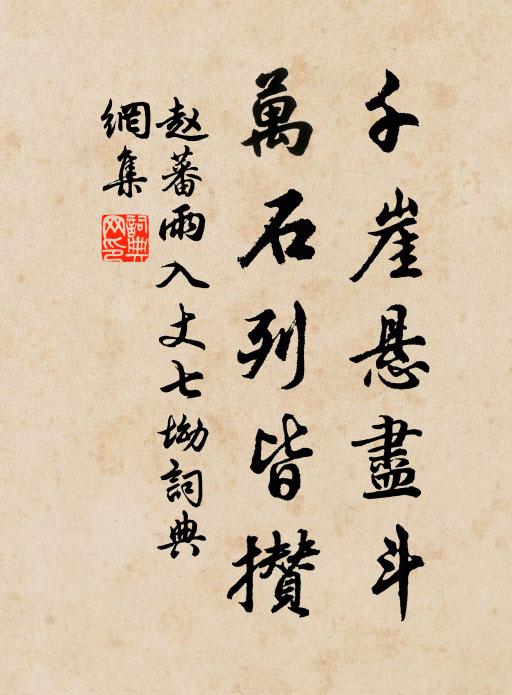 千崖悬盡斗
萬石列皆攢
赵蕃雨入丈七坳詞典
網集
詞典
网印